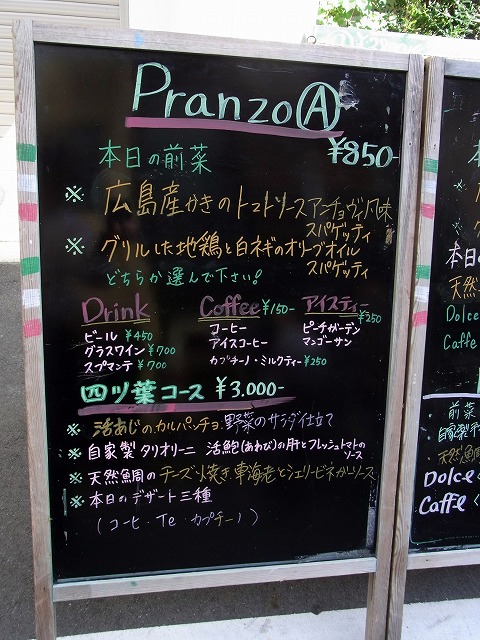 Pranzo Ⓐ
¥850-
本日の前菜
※ 広島産かきのトマトソースアンチョヴィ風味
スパゲッティ
※ グリルした地鶏と白ネギのオリーブオイル
スパゲッティ
どちらか選んで下さい!
Drink
ビール ¥450
グラスワイン ¥700
スプマンテ ¥700
Coffee ¥150-
コーヒー
アイスコーヒー
カプチーノ・ミルクティー ¥250
アイスティー
¥250
ピーチガーデン
マンゴーサン
四ツ葉コース ¥3.000-
※ 活あじのカルパッチョ.野菜のサラダ仕立て
※ 自家製タリオリーニ 活鮑(あわび)の肝とフレッシュトマトの
ソース
※ 天然魚周のチーズ焼き 車海老とシェリービネガーソース
※ 本日のデザート三種
(コーヒ・Te・カプチーノ)
本日
天然
Dolce
Caffe
前菜
自家製
天然魚
Dolce
Caffe